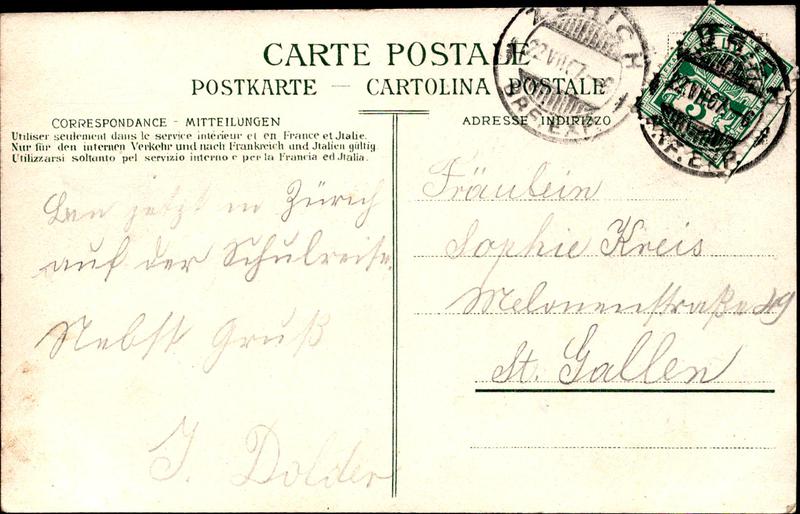 CARTE POSTALE
POSTKARTE — CARTOLINA POSTALE
CORRESPONDANCE - MITTEILUNGEN
Utiliser seulement dans le service intérieur et en France et Jtalie.
Nur für den internen Verkehr und nach Frankreich und Jtalien gültig.
Utilizzarsi soltanto pel servizio interno e per la Francia ed Jtalia.
Bin jetzt in Zürich
auf der Schulreise.
Nebst Gruß
J. Dolder
ADRESSE INDIRIZZO
Fräulein
Sophie Kreis
Melonenstraße 29
St. Gallen
ZÜRICH
22.VII.07
BRF. EXP.
5
ZÜRICH
22.VII.07
BRF. EXP.